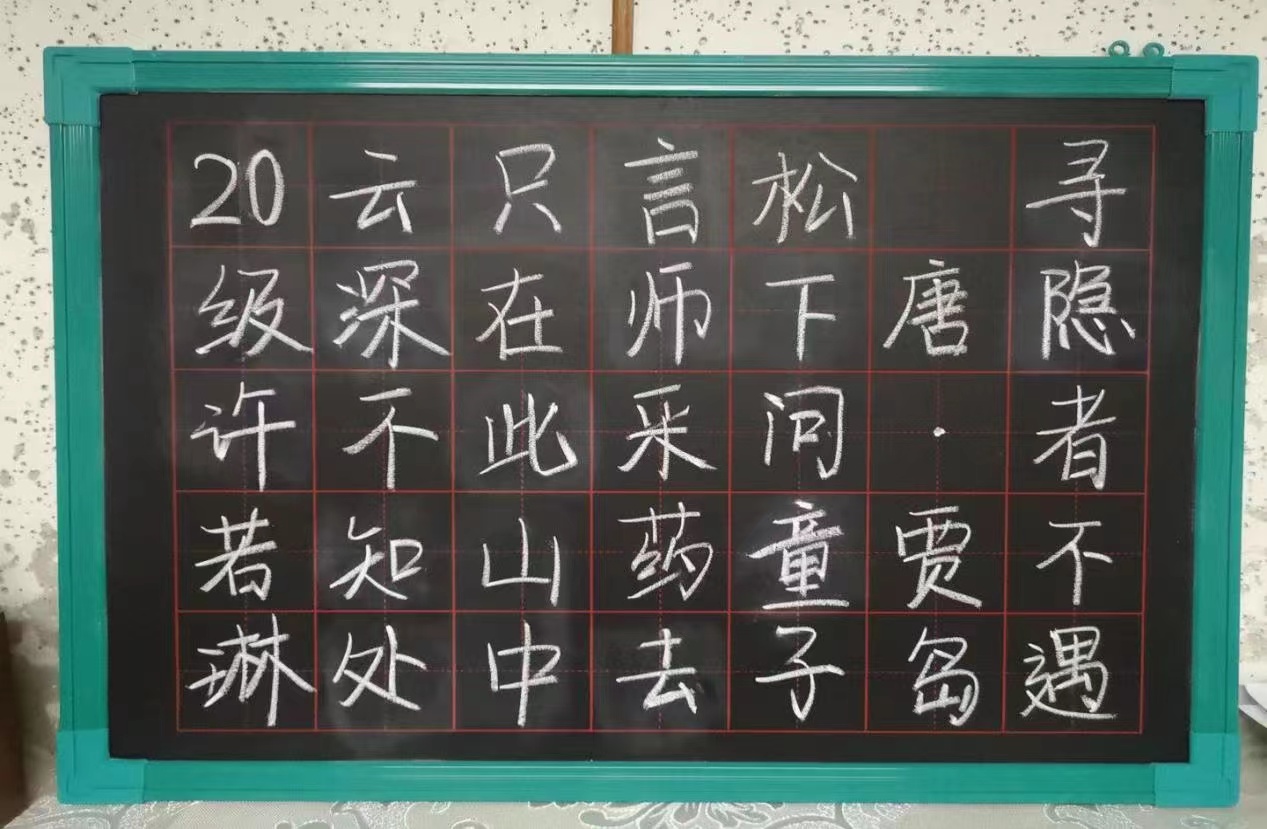 寻隐者不遇
唐·贾岛
松下问童子
言师采药去
只在此山中
云深不知处
20级许若琳